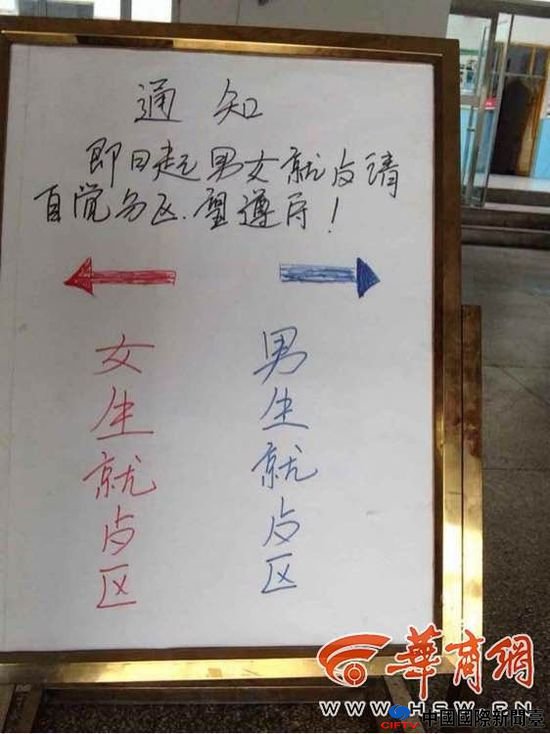 通知
即日起男女就歺请
自觉分区.望遵守!
女生就歺区
男生就歺区
華商網
WWW.HSW.CN
CIFTV 中國國際新聞臺